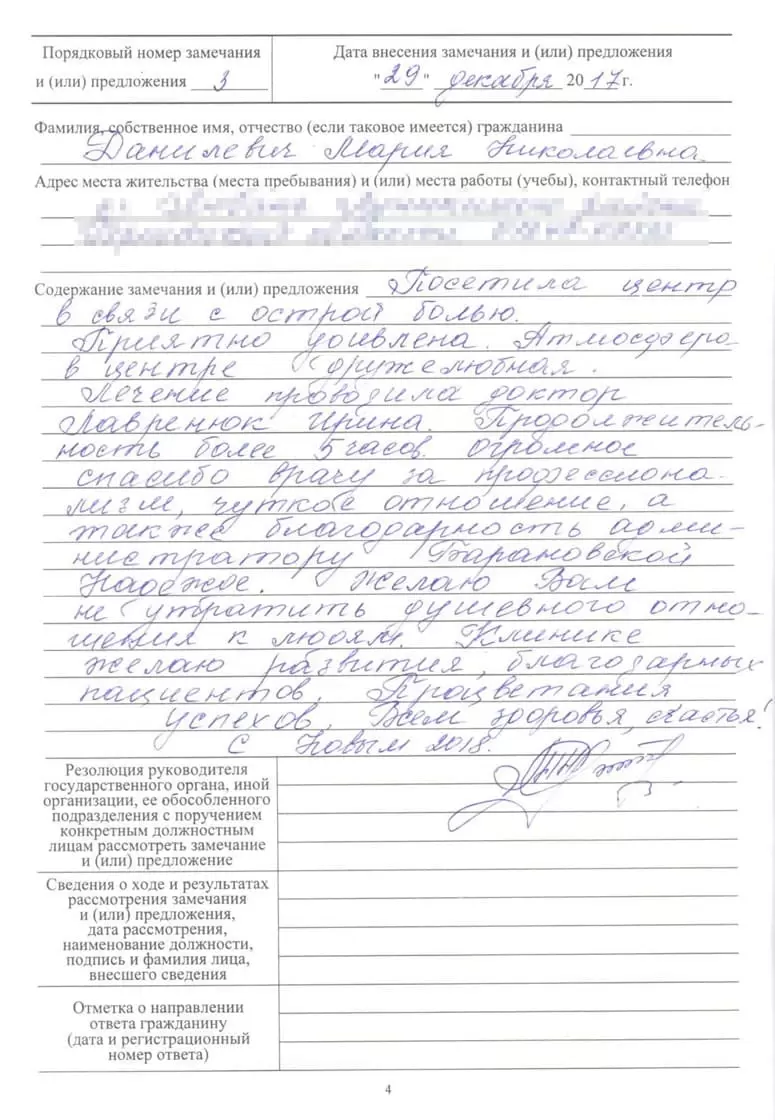 Порядковый номер замечания
и (или) предложения 3
Дата внесения замечания и (или) предложения
"29" декабря 2017г.
Фамилия, собственное имя, отчество (если таковое имеется) гражданина
Данилевич Мария Николаевна
Адрес места жительства (места пребывания) и (или) места работы (учебы), контактный телефон
Содержание замечания и (или) предложения Посетила центр
в связи с острой болью.
Приятно удивлена. Атмосфера
в центре дружелюбная.
Лечение проводила доктор
Лавренюк Ирина. Продолжитель-
ность более 5 часов. огромное
спасибо врачу за професслона-
лизм, чуткое отношение, а
также благодарность адми-
нистратору Барановской
Надежде. Желаю Вам
не утратить душевного отно-
шения к людям. Клинике
желаю развития, благодарных
пациентов. Процветания
успехов. Всем здоровья, счастья!
С Новым 2018.
Резолюция руководителя
государственного органа, иной
организации, ее обособленного
подразделения с поручением
конкретным должностным
лицам рассмотреть замечание
и (или) предложение
Сведения о ходе и результатах
рассмотрения замечания
и (или) предложения,
дата рассмотрения,
наименование должности,
подпись и фамилия лица,
внесшего сведения
Отметка о направлении
ответа гражданину
(дата и регистрационный
номер ответа)
4